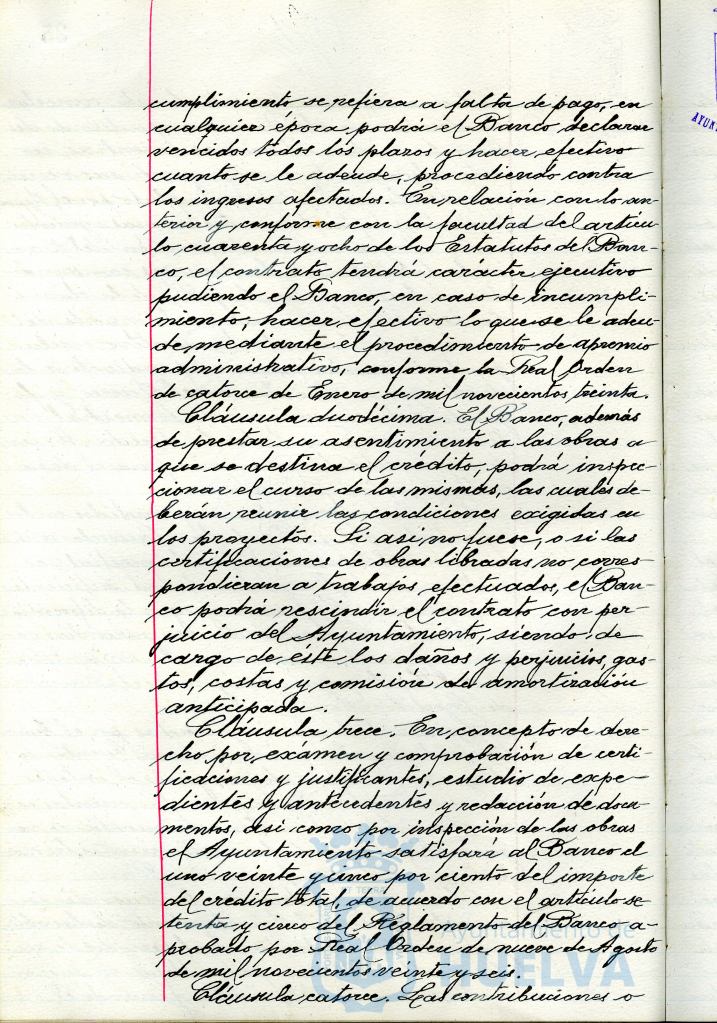 cumplimiento se refiera a falta de pago, en
cualquier época podrá el Banco, declarar
vencidos todos los plazos y hacer, efectivo
cuanto se le adeude, procediendo contra
los ingresos afectados. En relación con lo an-
terior y conforme con la facultad del artícu-
lo cuarenta y ocho de los Estatutos del Ban-
co, el contrato tendrá carácter ejecutivo
pudiendo el Banco, en caso de incumpli-
miento, hacer efectivo lo que se le adeu-
de mediante el procedimiento de apremio
administrativo, conforme la Real Orden
de catorce de Enero de mil novecientos treinta.
Cláusula duodécima. El Banco, además
de prestar su asentimiento a las obras a
que se destina el crédito, podrá inspec-
cionar el curso de las mismas, las cuales de-
berán reunir las condiciones exigidas en
los proyectos. Si así no fuese, o si las
certificaciones de obras libradas no corres-
pondieran a trabajos efectuados, el Ban-
co podrá rescindir el contrato con per-
juicio del Ayuntamiento, siendo de
cargo de éste los daños y perjuicios, gas-
tos, costas y comisión de amortización
anticipada.
Cláusula trece. En concepto de dere-
cho por exámen y comprobación de certi-
ficaciones y justificantes, estudio de expe-
dientes y antecedentes y redacción de docu-
mentos, así como por inspección de las obras
el Ayuntamiento satisfará al Banco el
uno veinte y cinco por ciento del importe
del crédito total, de acuerdo con el artículo se-
tenta y cinco del Reglamento del Banco a-
probado por Real Orden de nueve de Agosto
de mil novecientos veinte y seis.
Cláusula catorce. Las contribuciones o
Ayuntamiento de
HUELVA